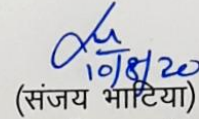 10/8/20
(संजय भाटिया)